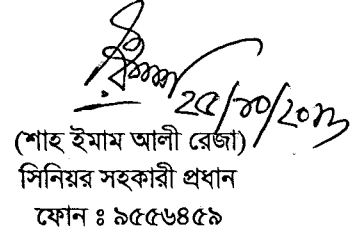 ২৫/১০/২০১৩
(শাহ ইমাম আলী রেজা)
সিনিয়র সহকারী প্রধান
ফোন ঃ ৯৫৫৬৪৫৯